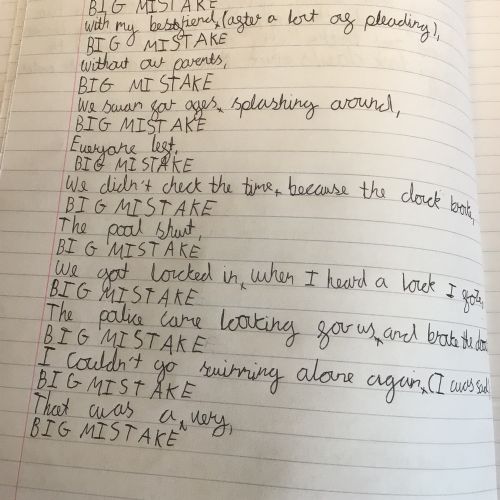 BIG MISTAKE
with my bestfriend, (after a lot of pleading),
BIG MISTAKE
without our parents,
BIG MISTAKE
We swam for ages, splashing around,
BIG MISTAKE
Everyone left,
BIG MISTAKE
We didn't check the time, because the clock broke,
BIG MISTAKE
The pool shut,
BIG MISTAKE
We got locked in, when I heard a lock I froze,
BIG MISTAKE
The police came looking for us, and broke the door
BIG MISTAKE
I couldn't go swimming alone again, (I was sad
BIG MISTAKE
That was a, very,
BIG MISTAKE